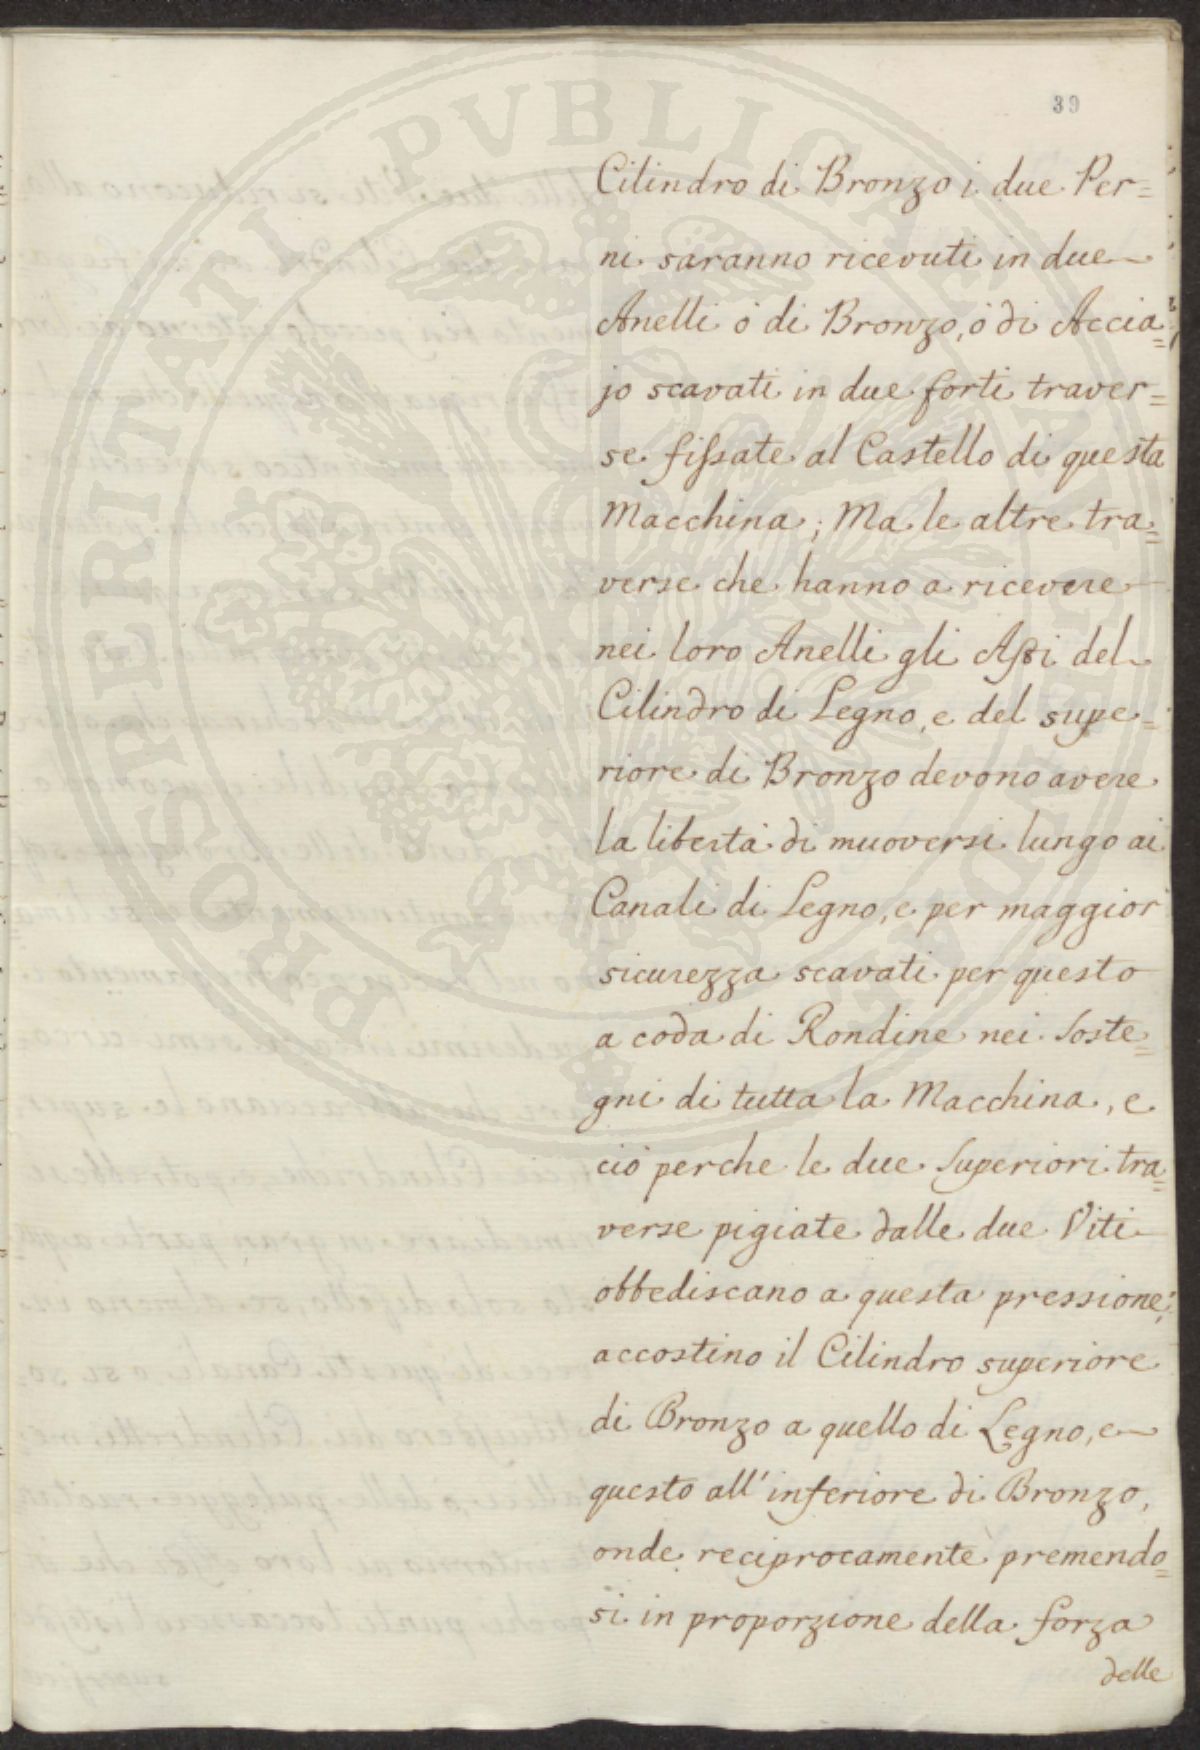 PROSPERITATI PVBLICAE AVGENDAE
39
Cilindro di Bronzo i due Per=
ni saranno ricevuti in due
Anelli ó di Bronzo, ó di Accia=
jo scavati in due forti traver=
se fiſsate al Castello di questa
Macchina; Ma le altre tra=
verse che hanno a ricevere
nei loro Anelli gli Aſsi del
Cilindro di Legno, e del supe=
riore di Bronzo devono avere
la libertà di muoversi lungo ai
Canali di Legno, e per maggior
sicurezza scavati per questo
a coda di Rondine nei Soste=
gni di tutta la Macchina, e
ciò perche le due Superiori tra=
verse pigiate dalle due Viti
obbediscano a questa pressione;
accostino il Cilindro superiore
di Bronzo a quello di Legno, e
questo all'inferiore di Bronzo,
onde reciprocamente premendo=
si in proporzione della forza
delle